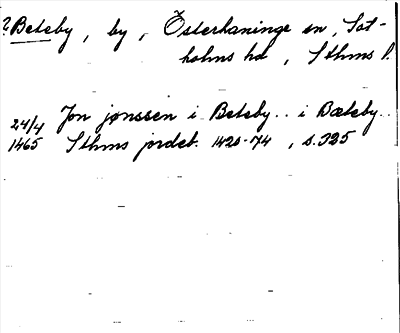 ? Beteby, by, Österhaninge sn, Sot-
holms hd, Sthms l.
24/4 Jon jonssen i Beteby.. i Bæteby..
1465 Sthms jordeb. 1420-74, s. 325